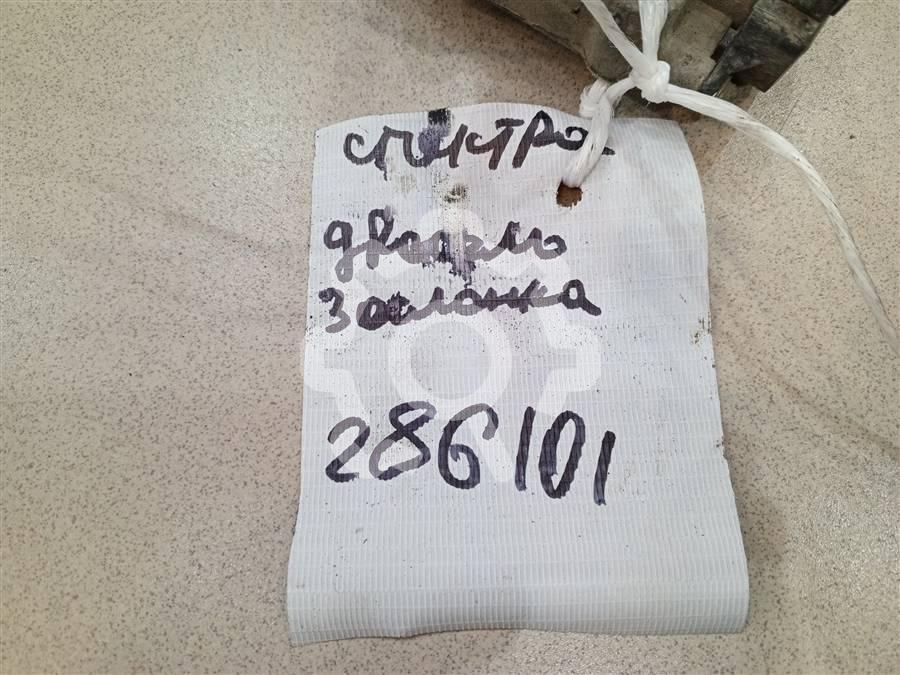 спектра
заслонка
286101